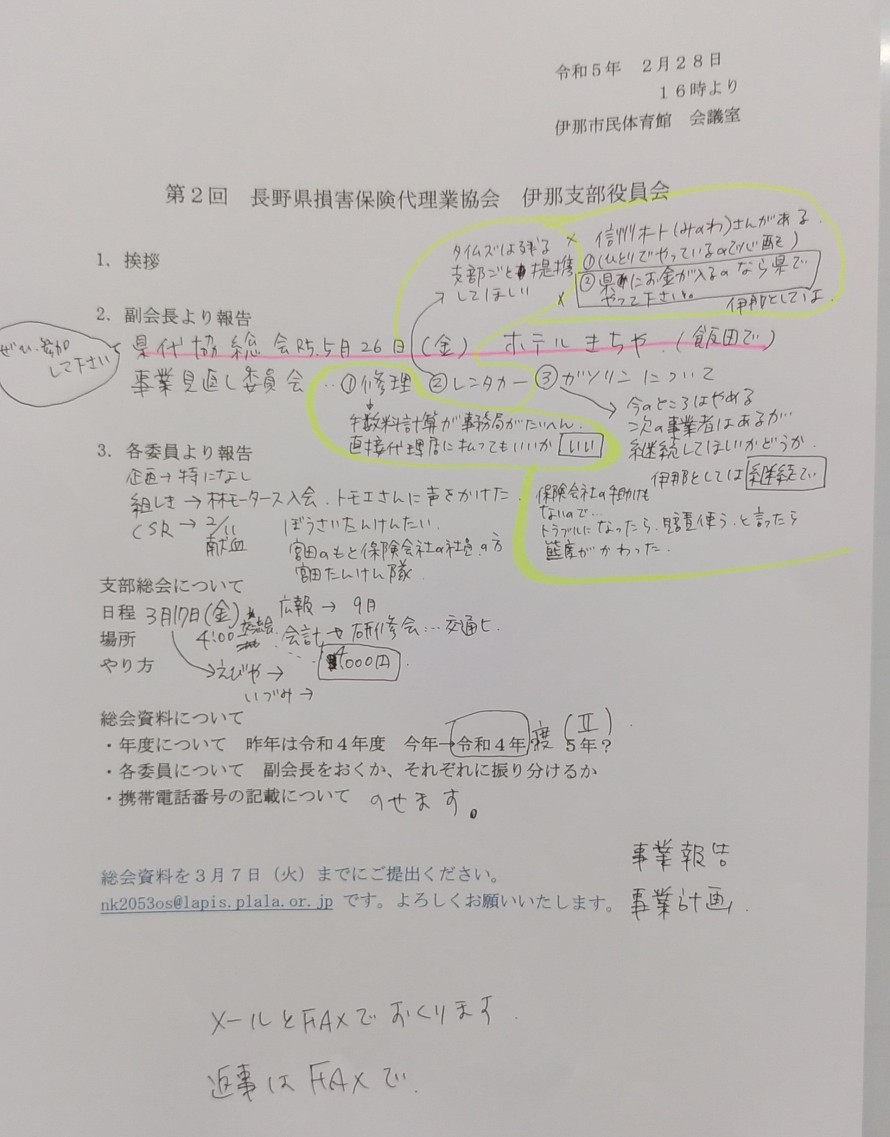 令和５年　２月２８日
１６時より
伊那市民体育館　会議室
第２回　長野県損害保険代理業協会　伊那支部役員会
１．挨拶
タイムズは残る
支部ごと提携
してほしい
× 信州ホート(みのわ)さんがある
①(ひとりでやっているので心配で)
②県にお金が入るのなら県で
× やって下さい。
伊那としては
２．副会長より報告
ぜひ、参加
して下さい
県代協 総会 R5.5月26日(金)　ホテルきちや.(飯田で)
事業見直し委員会 … ①修理 ②レンタカー ③ガソリンについて
手数料計算が事務局がたいへん.
直接代理店に払ってもいいか いい
今のところはやめる
次の事業者はあるが…
継続してほしいかどうか.
伊那としては 継続で
保険会社の手助けも
ないので…
トラブルになったら、使う、と言ったら
態度がかわった.
３．各委員より報告
企画→特になし
組しき → 林モータース入会. トモエさんに声をかけた.
CSR → 2/11 ぼうさいたんけんたい.
献血 宮田のもと保険会社の社員の方
宮田たんけん隊.
支部総会について
日程 3月17日(金) 広報 → 9月
場所 4:00 会計 → 研修会…交通ヒ.
やり方 えびや → 4000円
いづみ →
総会資料について
・年度について　昨年は令和４年度　今年→令和４年度 (Ⅱ) ５年？
・各委員について　副会長をおくか、それぞれに振り分けるか
・携帯電話番号の記載について のせます。
総会資料を３月７日（火）までにご提出ください。
nk2053os@lapis.plala.or.jp です。よろしくお願いいたします。
事業報告
事業計画.
メールとFAXでおくります.
返事はFAXで.